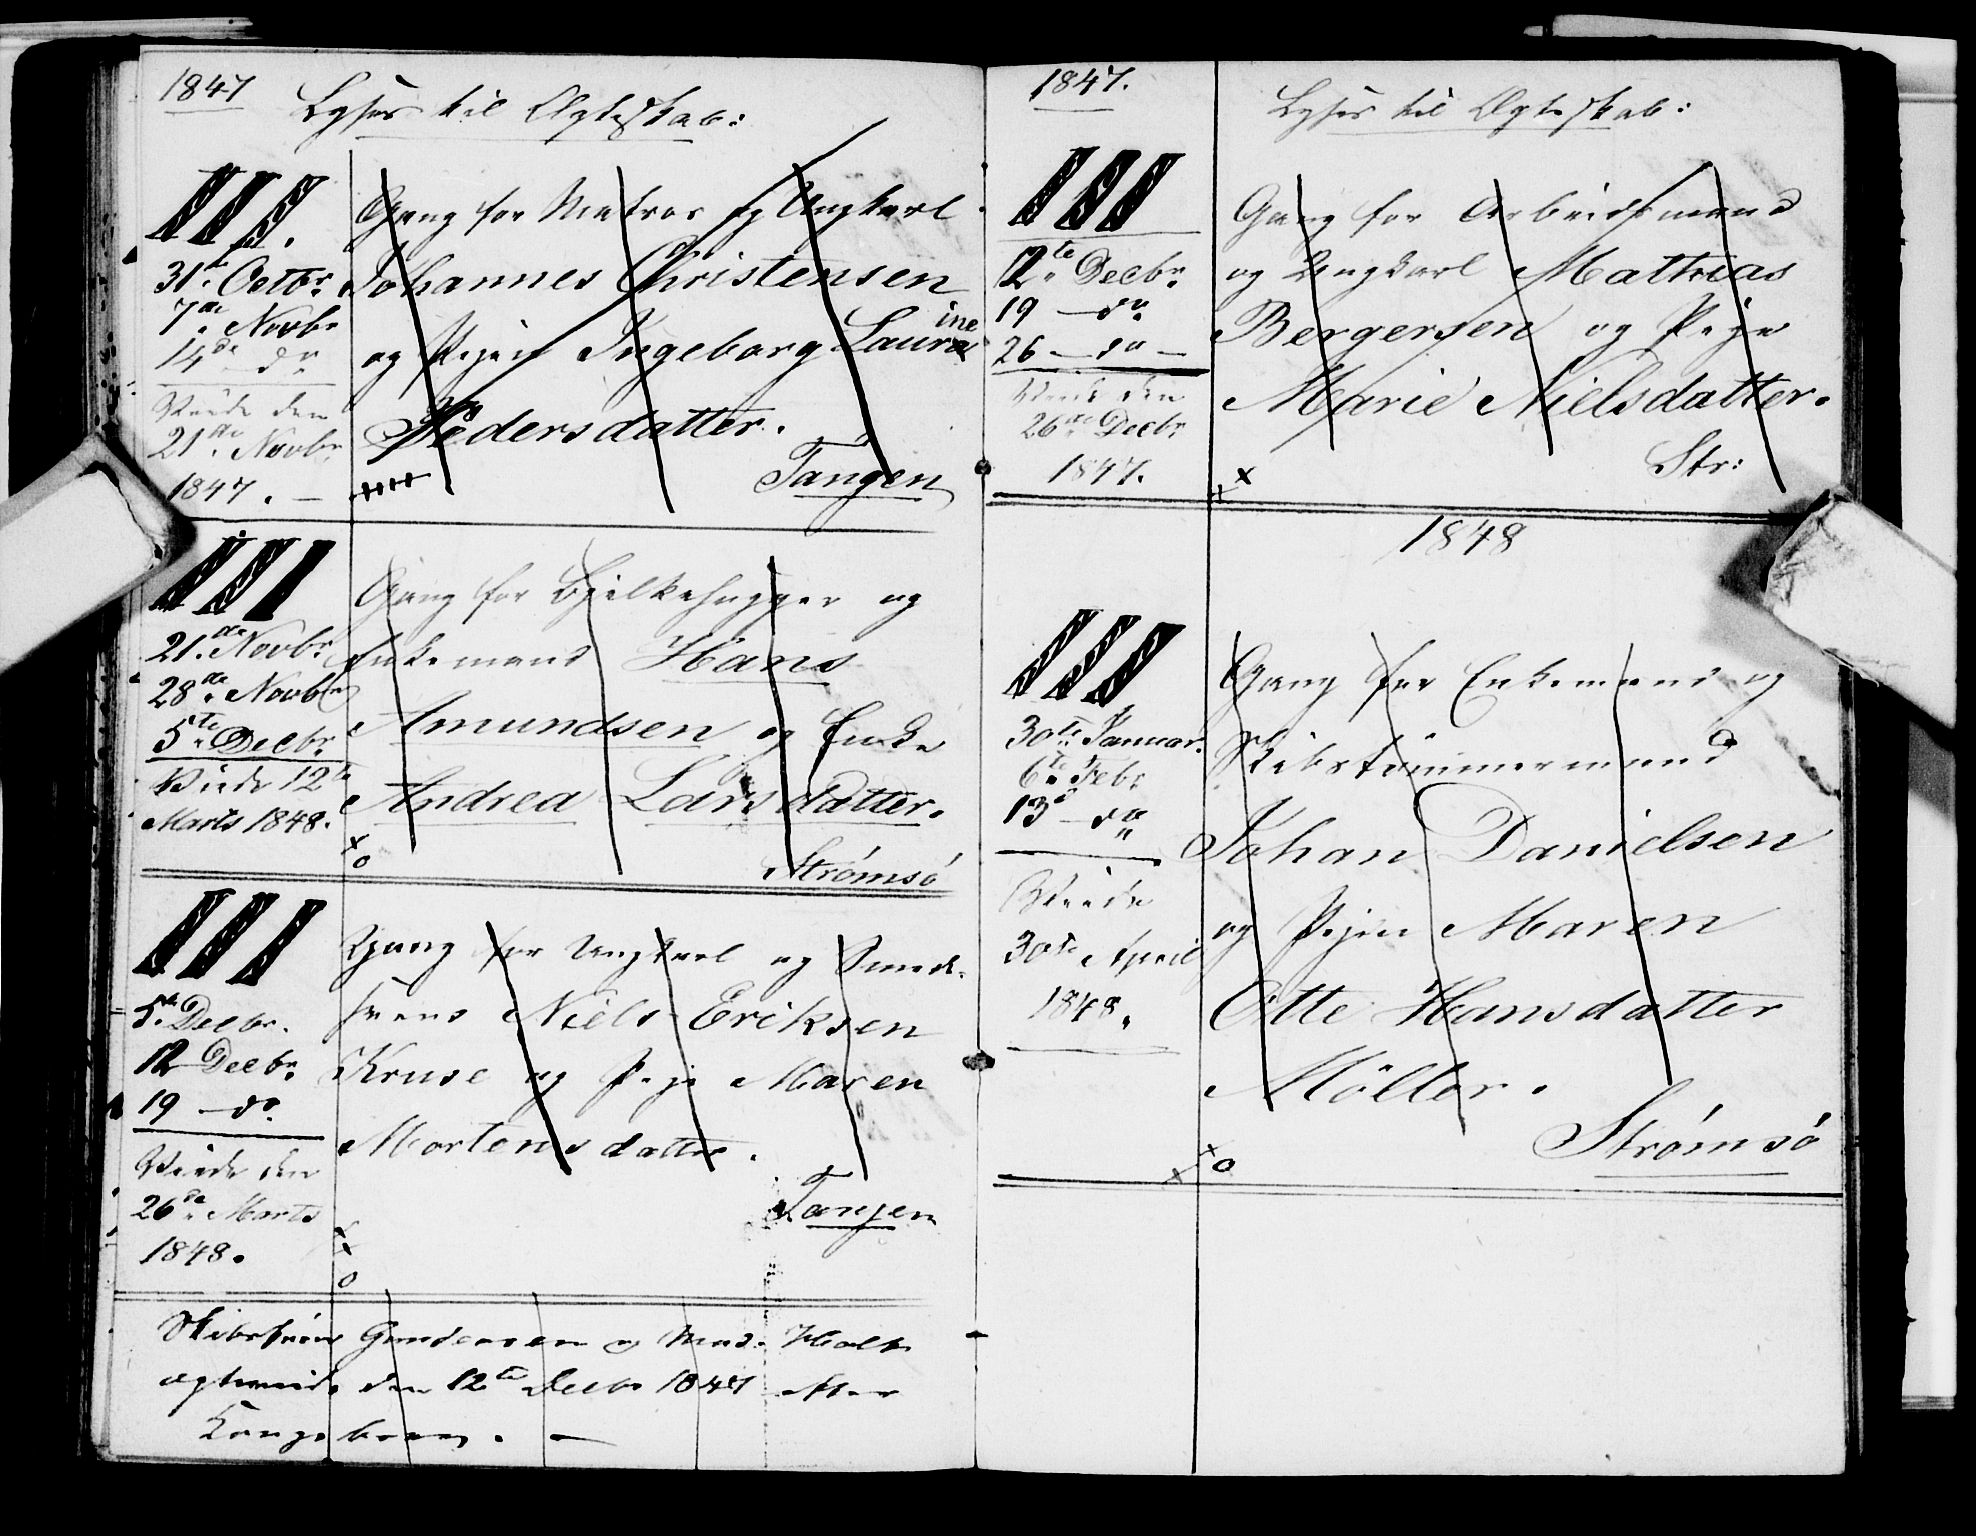 1847
Lyses til Ægteskab:
III.
31te Octbr.
7de Novbr
14de do
Viede den
21de Novbr.
1847. —
Gang for Matros og Ungkarl
Johannes Christensen
og Pigen Ingeborg Laurine
Pedersdatter.
Tangen
III
21de Novbr.
28de Novbr
5te Decbr.
Viede 12te
Marts 1848.
Gang for Bjelkehugger og
Enkemand Hans
Amundsen og Enke
Andrea Larsdatter.
Strømsö
III
5te Decbr.
12 Decbr.
19 — do.
Viede den
26de Marts
1848.
Gang for Ungkarl og Smede-
svend Niels Eriksen
Kruse og Pige Maren
Mortensdatter.
Tangen
Skibsfører Gundersen og Mad. Holt
ægteviede den 12te Decbr 1847 efter
Kongebrev. —
1847.
Lyses til Ægteskab:
III
12te Decbr.
19 — do.
26 — do —
Viede den
26de Decbr.
1847.
Gang for Arbeidsmand
og Ungkarl Mathias
Bergersen og Pige
Marie Nielsdatter.
Str:
1848
III
30te Januar.
6te Febr.
13de — do
Viede
30te April
1848.
Gang for Enkemand og
Skibstømmermand
Johan Danielsen
og Pigen Maren
Otte Hansdatter
Möller.
Strømsö